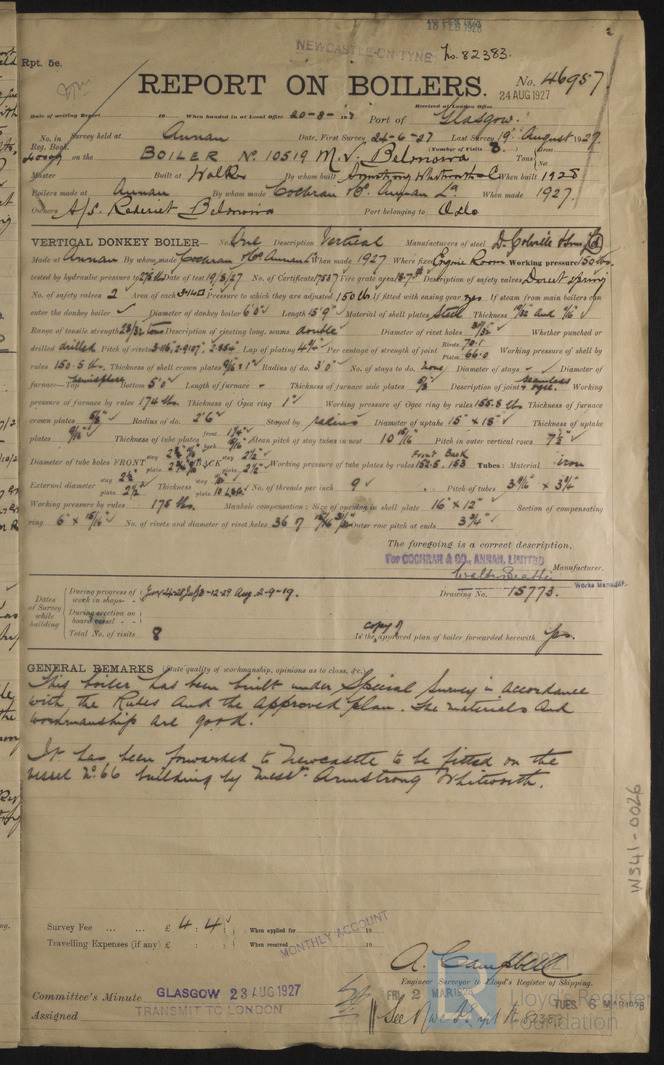 18 FEB 1928
NEWCASTLE-ON-TYNE No. 82383.
Rpt. 5e.
REPORT ON BOILERS. No. 46957
Received at London Office 24 AUG 1927
Date of writing Report 19 When handed in at Local Office 20-8-1927 Port of Glasgow.
No. in Reg. Book. Survey held at Annan Date, First Survey 24-6-27 Last Survey 19 August 1927
on the BOILER No. 10519 M.V. Belmowa (Number of Visits 8.) Tons
Master Built at Walker By whom built Armstrong Whitworth & Co When built 1928
Boilers made at Annan By whom made Cochran & Co. Annan Ld When made 1927.
Owners A/S. Rederiet Belmoira Port belonging to Oslo
VERTICAL DONKEY BOILER— No. One Description Vertical Manufacturers of steel D. Colville & Sons Ltd
Made at Annan By whom made Cochran & Co. Annan Ld When made 1927 Where fixed Engine Room Working pressure 150 lbs.
tested by hydraulic pressure to Date of test 19/8/27 No. of Certificate Fire grate area Description of safety valves Direct spring
No. of safety valves 2 Area of each Pressure to which they are adjusted 150 lb If fitted with easing gear yes If steam from main boilers can
enter the donkey boiler Diameter of donkey boiler 6'0" Length 15'9" Material of shell plates Steel Thickness 19/32 and 9/16"
Range of tensile strength 28/32 tons Description of riveting long. seams double Diameter of rivet holes Whether punched or
drilled drilled Pitch of rivets Lap of plating 4¾" Per centage of strength of joint Rivets 70.1 Plates 66.0 Working pressure of shell by
rules 150.5 lbs. Thickness of shell crown plates 9/16 + 1" Radius of do. 3'0" No. of stays to do. none Diameter of stays - Diameter of
furnace—Top hemisphere Bottom 5'0" Length of furnace Thickness of furnace side plates Description of joint seamless & ogee. Working
pressure of furnace by rules 174 lbs. Thickness of Ogee ring 1" Working pressure of Ogee ring by rules 155.8 lbs Thickness of furnace
crown plates Radius of do. 2'6" Stayed by radius Diameter of uptake 15" x 15" Thickness of uptake
plates 9/16" Thickness of tube plates front back Mean pitch of stay tubes in nest Pitch in outer vertical rows 7½"
Diameter of tube holes FRONT stay plate BACK stay 2½" plate 2½" Working pressure of tube plates by rules Front 152.5 Back 153 Tubes: Material iron
External diameter stay 2½" plain 2½" Thickness stay plain 10 L.S.G. No. of threads per inch 9 Pitch of tubes 3 9/16" x 3¾"
Working pressure by rules 175 lbs. Manhole compensation: Size of opening in shell plate 16" x 12" Section of compensating
ring 6" x 15/16" No. of rivets and diameter of rivet holes 36 Outer row pitch at ends 3¾"
The foregoing is a correct description,
For COCHRAN & CO., ANNAN, LIMITED
Manufacturer.
Works Manager.
Dates of Survey while building
During progress of work in shops - - Jun 24.28 July 5-12-29 Aug 2-9-19.
During erection on board vessel - - -
Total No. of visits 8
Drawing No. 15773.
Is the copy of approved plan of boiler forwarded herewith yes.
GENERAL REMARKS (State quality of workmanship, opinions as to class, &c.)
This boiler has been built under Special Survey in accordance
with the Rules and the approved plan. The materials and
workmanship are good.
It has been forwarded to Newcastle to be fitted on the
vessel No. 66 building by Messrs Armstrong Whitworth.
W341-0026
Survey Fee ... ... £ 4 : 4 : When applied for 19
Travelling Expenses (if any) £ : : When received 19
MONTHLY ACCOUNT
A. Campbell
Engineer Surveyor to Lloyd's Register of Shipping.
Committee's Minute GLASGOW 23 AUG 1927 FRI. 2 MAR 1928 TUES. 6 MAR 1928
Assigned TRANSMIT TO LONDON See Nwc Rpt No 82383
© 2021
Lloyd's Register
Foundation